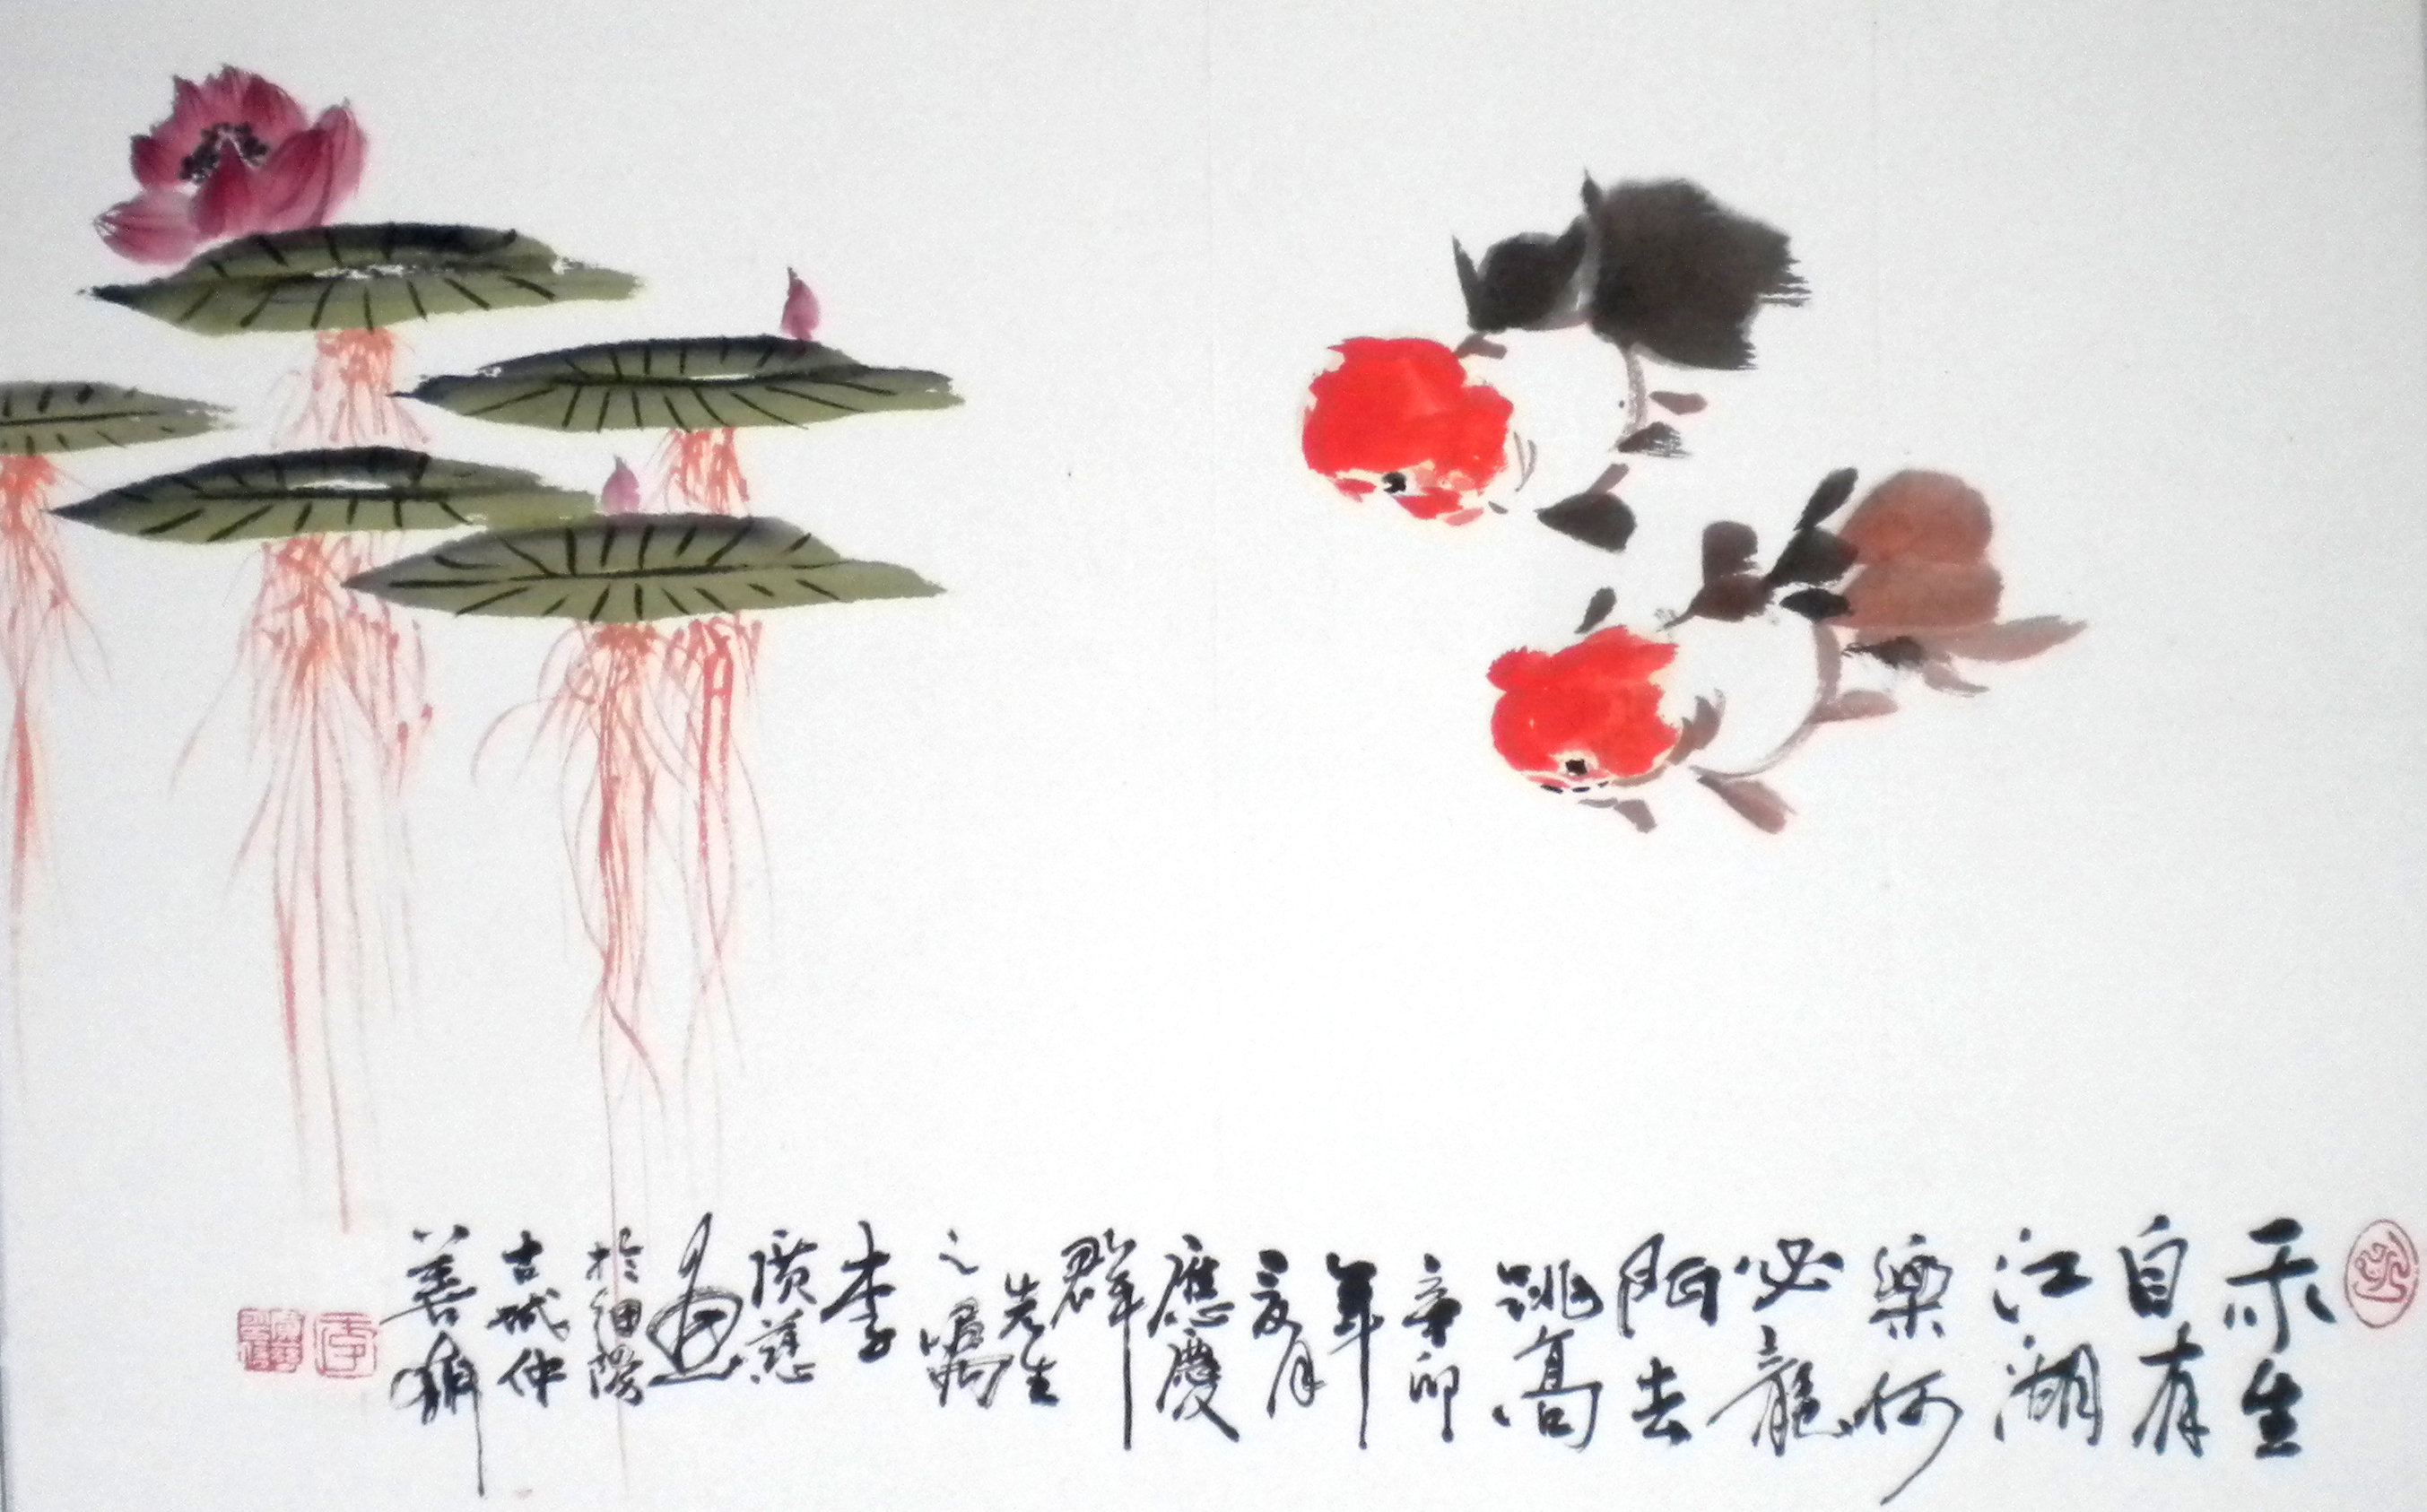 乐生
自有
江湖
樂何
必龍
门去
跳高
辛卯
年
夏月
應慶
群
先生
之囑
李
广慈
画
於細陽
古城仲
善